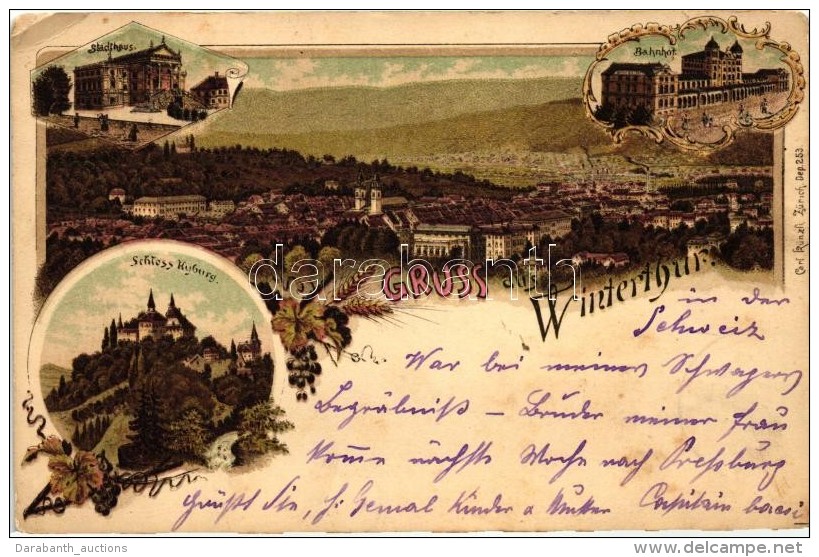 Stadthaus.
Bahnhof.
Carl Künzli, Zürich, Dep. 253.
Schloss Kyburg.
Darabanth
GRUSS aus
Winterthur.
in der
Schweiz
War bei meines Schwagers
Begräbniß – Bruder meiner Frau
Komme nächste Woche nach Preßburg
Grüßt Sie, h. Gemal Kinder u Mutter Capitain bacsi
Darabanth_auctions
http://www.delcampe.net